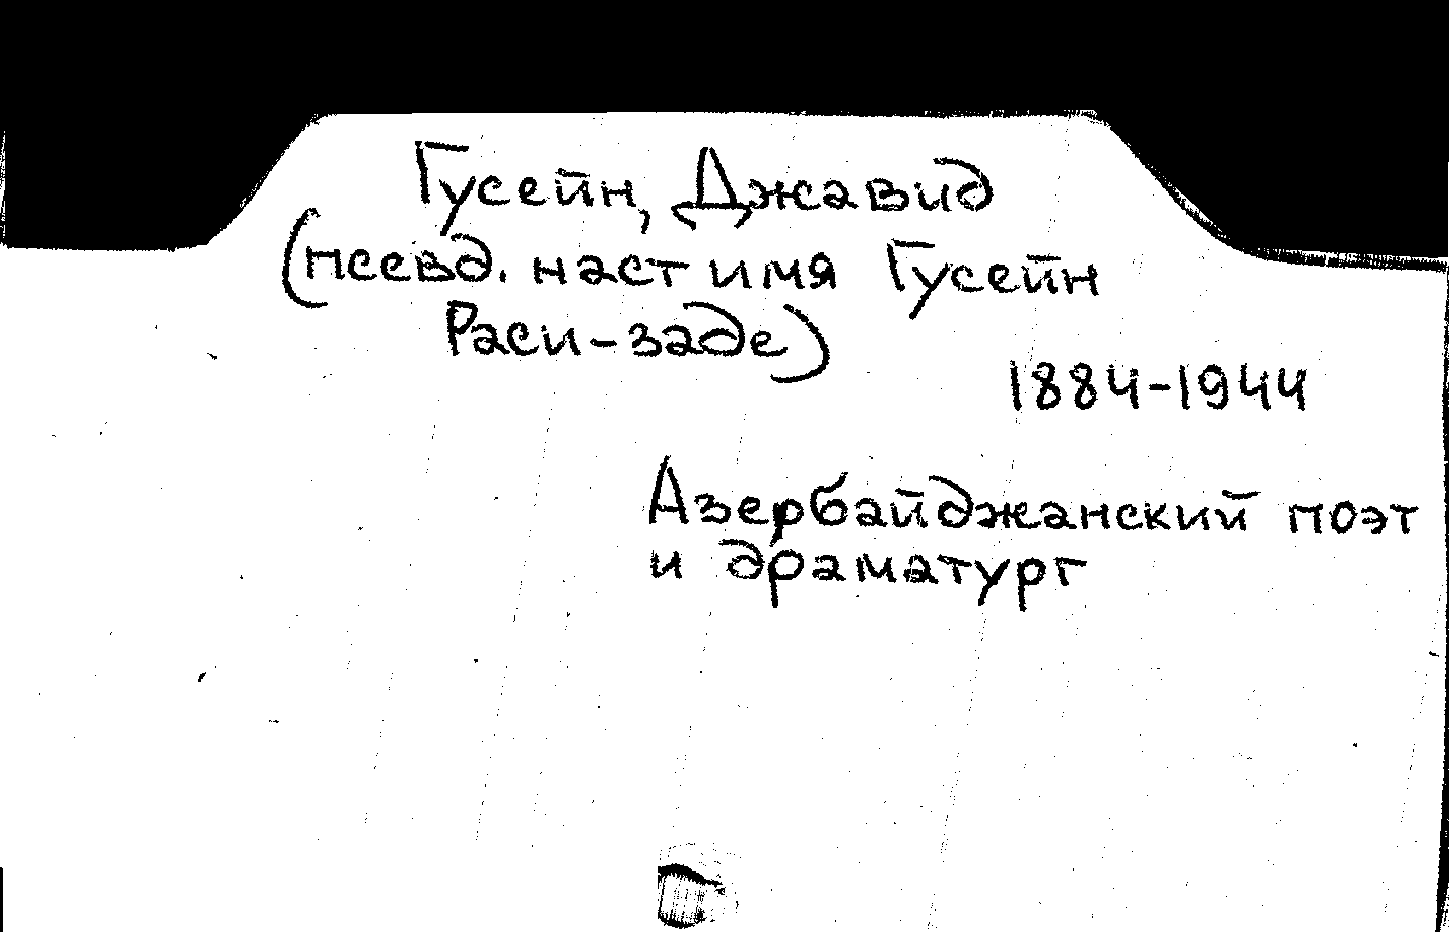 Гусейн, Джавид
(псевд. наст имя Гусейн
Раси-заде)
1884-1944
Азербайджанский поэт
и драматург